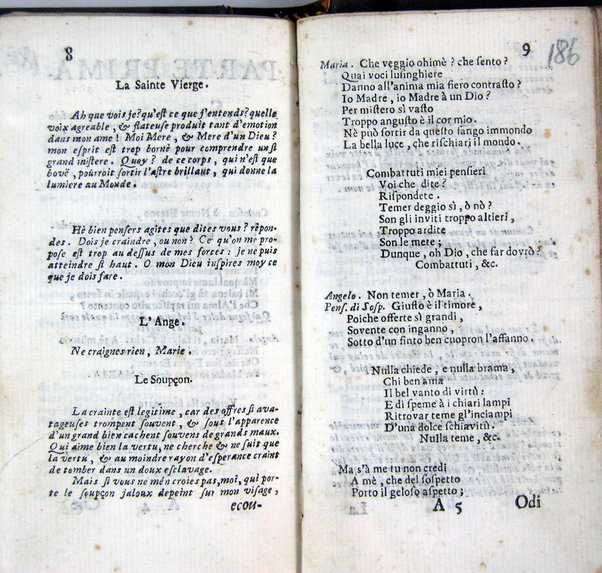 8
La Sainte Vierge.
Ah que vois je? qu'est ce que j'entends? quelle
voix agreable, & flateuse produit tant d'emotion
dans mon ame! Moi Mere, & Mere d'un Dieu?
mon esprit est trop borné pour comprendre un si
grand mistere. Quoy? de ce corps, qui n'est que
bouë, pourroit sortir l'astre brillant, qui donne la
lumiere au Monde.
Hè bien pensers agites que dites vous? répon-
des. Dois je craindre, ou non? Ce qu'on me pro-
pose est trop au dessus de mes forces: je ne puis
atteindre si haut. O mon Dieu inspires moy ce
que je dois fare.
L'Ange.
Ne craignes rien, Marie.
Le Soupçon.
La crainte est legitime, car des offres si ava-
tageuses trompent souvent, & sous l'apparence
d'un grand bien cachent souvens de grands maux.
Qui aime bien la vertu, ne cherche & ne suit que
la vertu, & au moindre rayon d'esperance craint
de tomber dans un doux esclavage.
Mais si vous ne mén croies pas, moi, qui por-
te le soupçon jaloux depeint sur mon visage,
ecou-
9
186
Maria. Che veggio ohimè? che sento?
Quai voci lusinghiere
Danno all'anima mia fiero contrasto?
Io Madre, io Madre à un Dio?
Per mistero sì vasto
Troppo angusto è il cor mio.
Nè può sortir da questo fango immondo
La bella luce, che rischiari il mondo.
Combattuti miei pensieri
Voi che dite?
Rispondete.
Temer deggio sì, ò nò?
Son gli inviti troppo altieri,
Troppo ardite
Son le mete;
Dunque, oh Dio, che far dovrò?
Combattuti, &c.
Angelo. Non temer, ò Maria.
Pens. di Sosp. Giusto è il timore,
Poiche offerte sì grandi,
Sovente con inganno,
Sotto d'un finto ben cuopron l'affanno.
Nulla chiede, e nulla brama,
Chi ben ama
Il bel vanto di virtù:
E di speme à i chiari lampi
Ritrovar teme gl'inciampi
D'una dolce schiavitù.
Nulla teme, &c.
Ma s'à me tu non credi
A mè, che del sospetto
Porto il geloso aspetto;
A 5
Odi